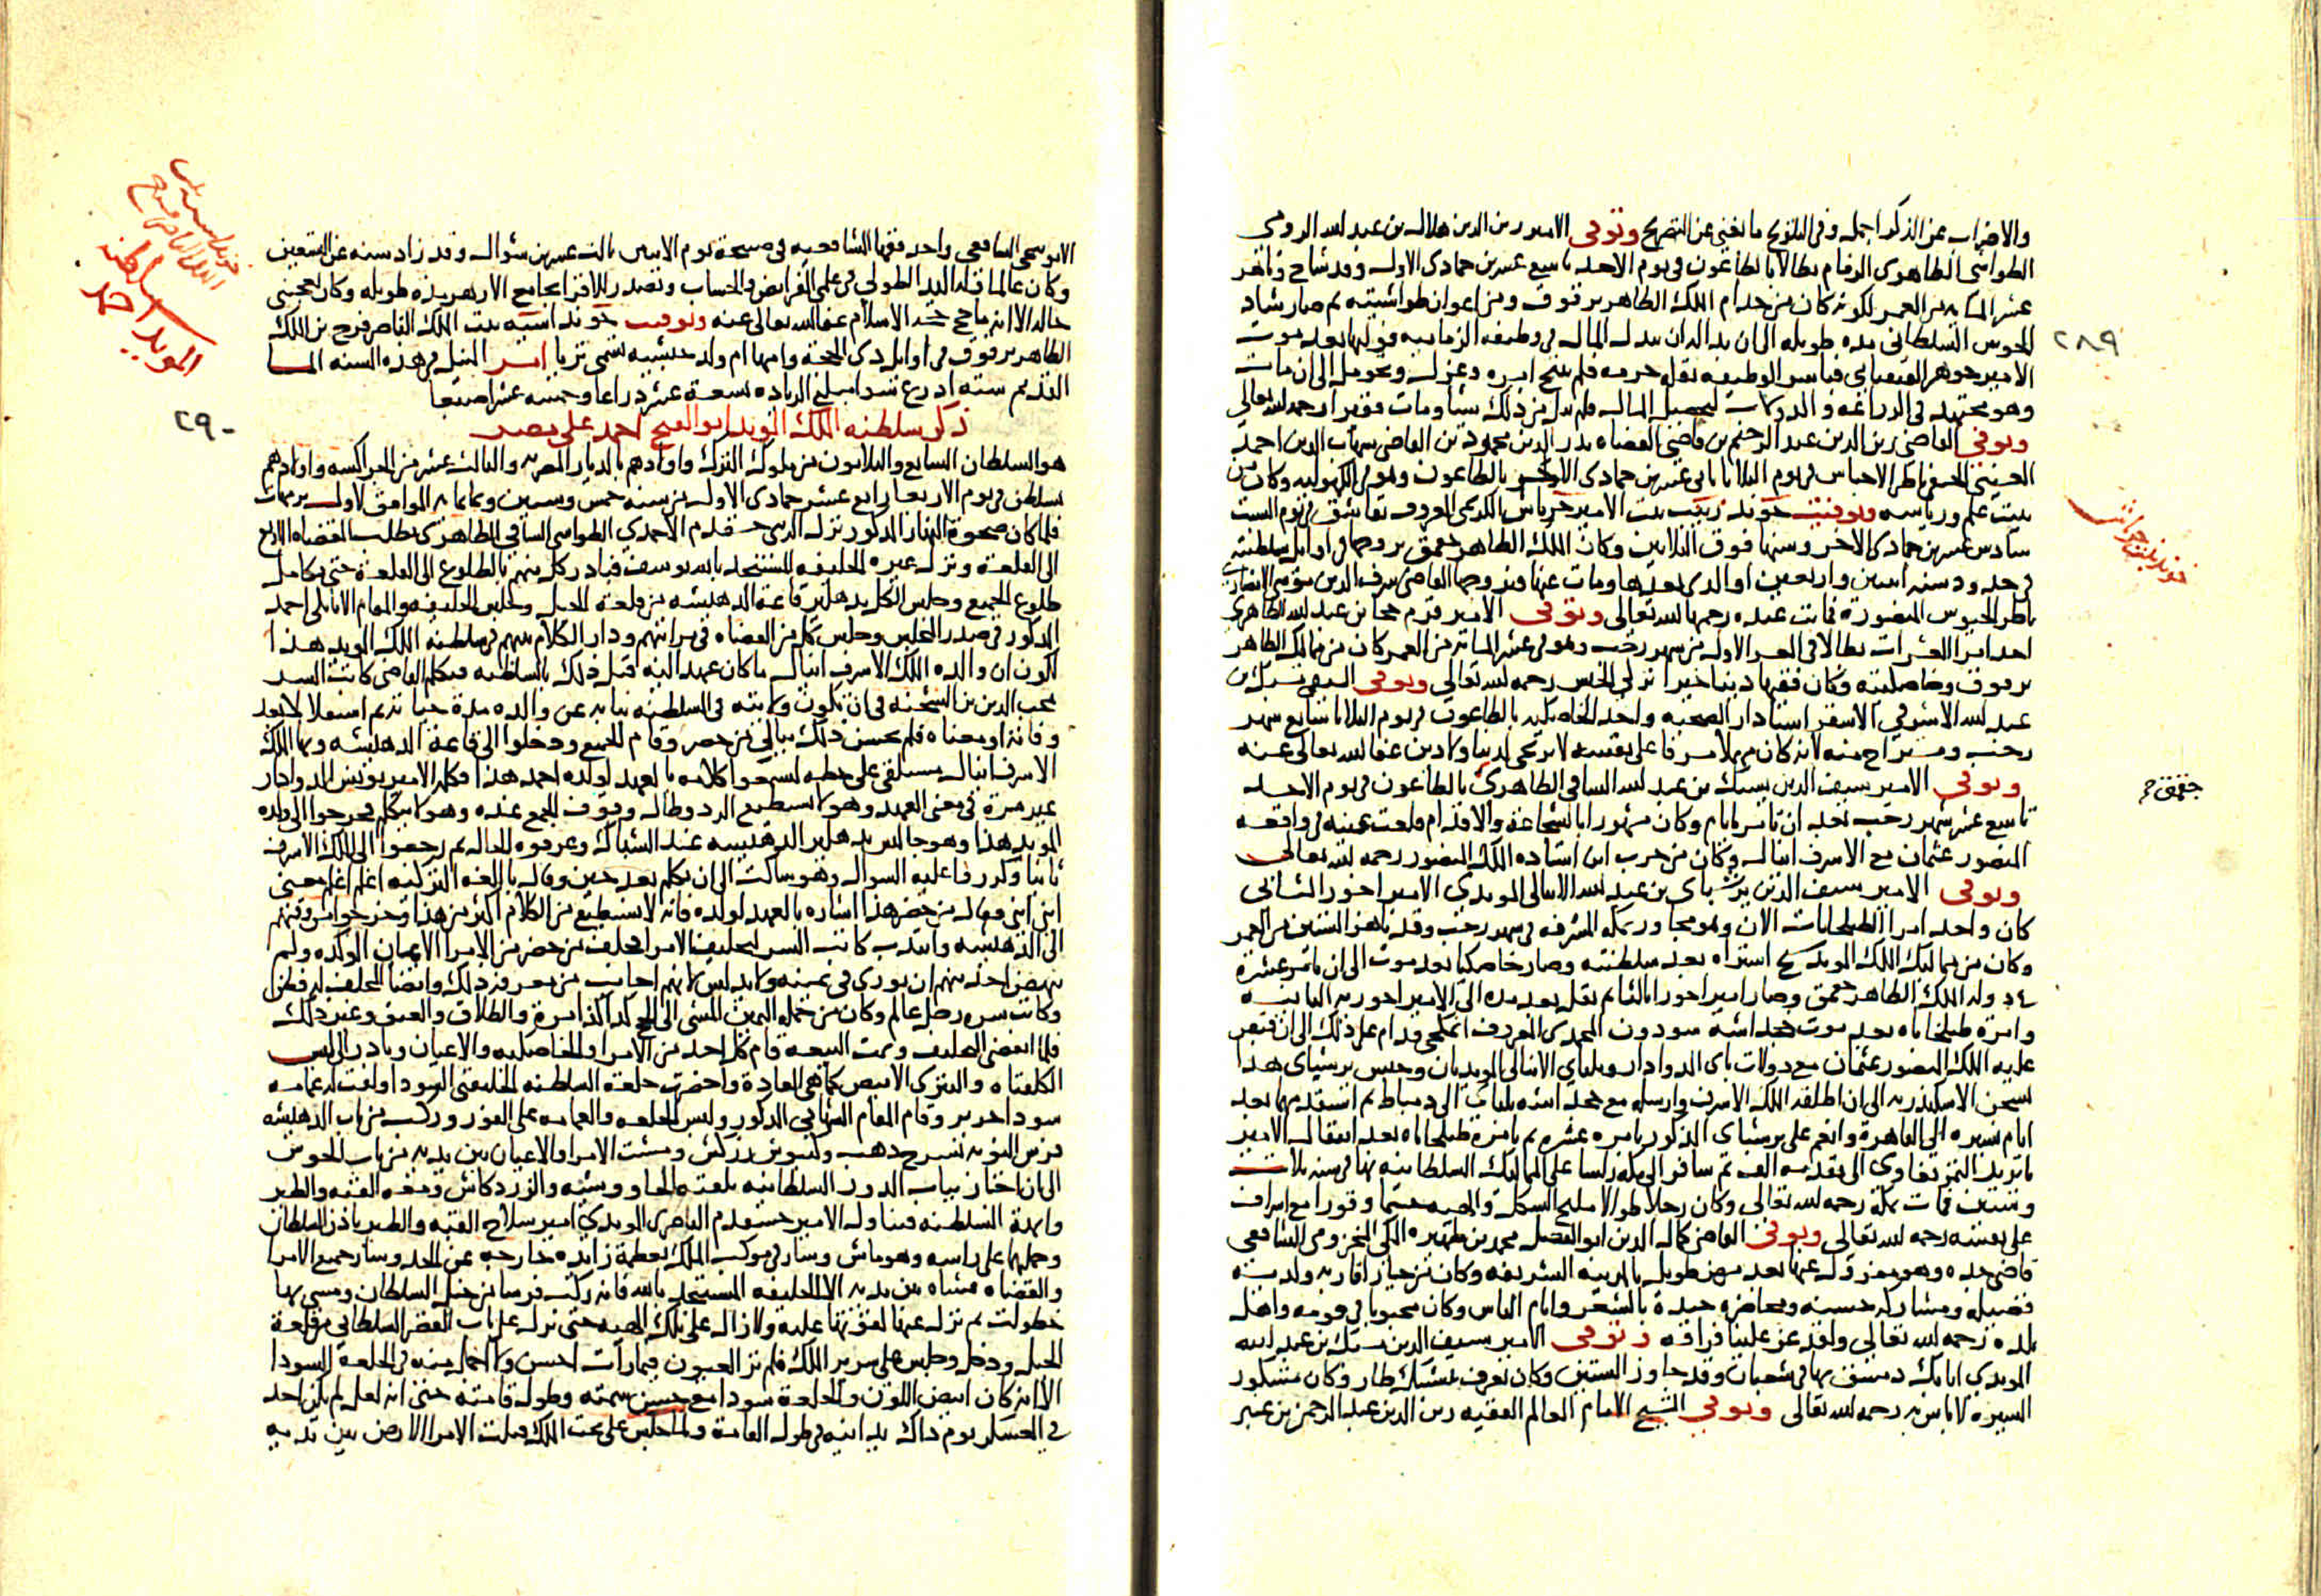 والاضراب عن الذكر اجمل وفى التلويح ما يغنى عن التصريح وتوفى الامير زين الدين هلال بن عبد الله الرومي
الطواشى الظاهرى الزمام بطالا بالطاعون فى يوم الاحد تاسع عشرين جمادى الاول وقد شاخ وناهز
عشر المايه من العمر لكونه كان من خدام الملك الظاهر برقوق ومن اعوان طواشيته ثم صار شاد
الحوش السلطانى مده طويله الى ان بدا له ان يبذل المال فى وظيفه الزماميه فوليها بعد موت
الامير جوهر القنقباى فباشر الوظيفه بقله حرمه فلم ينتج امره وعزل وتحومل الى ان مات
وهو مجتهد فى الزراعه والدوكات ليحصل المال فلم ينل من ذلك شيا ومات فقيرا رحمه الله تعالى
وتوفى القاضى زين الدين عبد الرحيم بن قاضى القضاه بدر الدين محمود بن القاضى شهاب الدين احمد
العينى الحنفى ناظر الاحباس فى يوم الثلاثا ثانى عشرين جمادى الاخر بالطاعون وهو فى الكهوليه وكان من
بيت علم ورياسه وتوفيت خوند زينب بنت الامير جرباش الكريمى المعروف بقاشق فى يوم السبت
سادس عشرين جمادى الاخر وسنها فوق الثلاثين وكان الملك الظاهر جقمق تزوجها فى اوايل سلطنته
فى حدود سنه اثنين واربعين او الذى بعدها ومات عنها فتزوجها القاضى شرف الدين موسى الانصارى
ناظر الجيوش المنصوره فماتت عنده رحمها الله تعالى وتوفى الامير قرم خجا بن عبد الله الظاهرى
احد امرا العشرات بطالا فى العشر الاول من شهر رجب وهو فى عشر المايه من العمر كان من مماليك الظاهر
برقوق وخاصكيته وكان فقيها دينا خيرا تركى الجنس رحمه الله تعالى وتوفى السيفى يشبك بن
عبد الله الاشرفى الاشقر استادار الصحبه واحد الخاصكيه بالطاعون فى يوم الثلاثا سابع شهر
رجب ومستراح منه لانه كان مهملا مسرفا على نفسه لا يرتجى لدنيا ولا دين عفا الله تعالى عنه
وتوفى الامير سيف الدين يشبك بن عبد الله الساقى الظاهرى بالطاعون فى يوم الاحد
تاسع عشر شهر رجب بعد ان تامر بايام وكان مشهورا بالشجاعه والاقدام قلعت عينه فى واقعه
المنصور عثمان مع الاشرف اينال وكان من حزب ابن استاده الملك المنصور رحمه الله تعالى
وتوفى الامير سيف الدين برشباى بن عبد الله الاينالى المويدى الامير اخور الثانى
كان واحد امرا الطبلخانات الان وهو مجاور بمكه المشرفه فى شهر رجب وقد ناهز الستين من العمر
وكان من مماليك الملك المويد شيخ اشتراه بعد سلطنته وصار خاصكيا بعد موته الى ان تامر عشرة
فى دوله الملك الظاهر جقمق وصار امير اخورا ثالثا ثم نقل بعد مده الى الامير اخوريه الثانيه
وامرة طبلخاناه بعد موت خجداشه سودون المحمدى المعروف اتمكجى ودام على ذلك الى ان قبض
عليه الملك المنصور عثمان مع دولات باى الدوادار ويلباى الاينالى المويديان وحبس برشباى هذا
بسجن الاسكندريه الى ان اطلقه الملك الاشرف وارسله مع خجداشه يلباى الى دمياط ثم استقدمهما بعد
ايام يسيره الى القاهرة وانعم على برشباى المذكور بامره عشره ثم بامرة طبلخاناه بعد انتقال الامير
بايزيد التمربغاوى الى تقدمه الف ثم سافر الى مكه رايسا على المماليك السلطانيه بها فى سنه ثلاث
وستين فمات بمكه رحمه الله تعالى وكان رجلا طوالا مليح الشكل والهيئه حشما وقورا مع اسراف
على نفسه رحمه الله تعالى وتوفى القاضى كمال الدين ابو الفضل محمد بن ظهيره المكى المخزومى الشافعى
قاضى جده وهو معزول عنها بعد مرض طويل بالمدينه الشريفه وكان من خيار اقاربه ولديه
فضيله ومشاركه حسنه ومحاضره جيدة بالشعر وايام الناس وكان محبوبا فى قومه واهل
بلده رحمه الله تعالى ولقد عز علينا فراقه وتوفى الامير سيف الدين يشبك بن عبد الله
المويدى اتابك دمشق بها فى شعبان وقد جاوز الستين وكان يعرف بيشبك طاز وكان مشكور
السيرة لا باس به رحمه الله تعالى وتوفى الشيخ الامام العالم الفقيه زين الدين عبد الرحمن بن عنبر
٢٨٩
خوند بنت جرباش
جقمق
الابوسجى الشافعى واحد فقها الشافعيه فى صبيحة يوم الاثنين ثالث عشرين شوال وقد زاد سنه عن التسعين
وكان عالما وله اليد الطولى فى علمى الفرايض والحساب وتصدر للاقرا بجامع الازهر مده طويله وكان اعجميى
حاله الا انه ما حج حجه الاسلام عفا الله تعالى عنه وتوفيت خوند اسيه بنت الملك الناصر فرج بن الملك
الظاهر برقوق فى اوايل ذى الحجة وامها ام ولد حبشيه تسمى ثريا امر النيل فى هذه السنه الما
القديم سته اذرع سوا مبلغ الزياده تسعة عشر ذراعا وخمسه عشر اصبعا
ذكر سلطنه الملك المويد ابو الفتح احمد على مصر
هو السلطان السابع والثلاثون من ملوك الترك واولادهم بالديار المصريه والثالث عشر من الجراكسه واولادهم
تسلطن فى يوم الاربعا رابع عشر جمادى الاول من سنه خمس وستين وثمانمايه الموافق لاول برمهات
فلما كان صحوة النهار المذكور نزل الزينى خشقدم الاحمدى الطواشى الساقى الظاهرى بطلب القضاه الاربع
الى القلعة ونزل غيره للخليفه المستنجد بالله يوسف فبادر كل منهم بالطلوع الى القلعة حتى تكامل
طلوع الجميع وجلس الكل بدهليز قاعه الدهيشه من قلعه الجبل وجلس الخليفه والمقام الاتابكى احمد
المذكور فى صدر المجلس وجلس كل من القضاه فى مراتبهم ودار الكلام بينهم فى سلطنه الملك المويد هذا
لكون ان والده الملك الاشرف اينال ما كان عهد اليه قبل ذلك بالسلطنه فتكلم القاضى كاتب السر
محب الدين بن الشحنه فى ان تكون ولايته فى السلطنه نيابه عن والده مدة حياته ثم استقلالا بعد
وفاته او معناه فلم يحسن ذلك ببال من حضر وقام الجميع ودخلوا الى قاعة الدهيشه وبها الملك
الاشرف اينال مستلقى على ليسمعوا كلامه بالعهد لولده احمد هذا فكلمه الامير يونس الدوادار
غير مرة فى معنى العهد وهو لا يستطيع الرد وطال وقوف الجمع عنده وهو لا يتكلم فخرجوا الى ولده
المويد هذا وهو جالس بدهليز الدهيشه عند الشباك وعرفوه الحال ثم رجعوا الى الملك الاشرف
ثانيا وكرروا عليه السوال وهو ساكت الى ان تكلم بعد حين وقال باللغه التركيه اغلم اغلم معنى
ابنى ابنى فقال من حضر هذا اشاره بالعهد لولده فانه لا يستطيع من الكلام اكثر من هذا وخرجوا من وقتهم
الى الدهيشه وانتدب كاتب السر لتحليف الامرا فحلف من حضر من الامرا الايمان الموكده ولم
ينهض احد منهم ان يورى فى يمينه ولا يدلس كانهم اجانب من معرفه ذلك وايضا المحلف لهم فطن
وكاتب سره رجل عالم وكان من جمله اليمين المشى الى الحج كذا كذا مرة والطلاق والعتق وغير ذلك
فلما انقضى التحليف وتمت البيعه قام كل احد من الامرا والخاصكيه والاعيان وبادر الى لبس
الكلفتاه والتترى الابيض كما هى العادة واحضرت خلعة السلطنه الخليفتى السودا ولفت له عمامه
سودا حرير وقام المقام الشهابى المذكور ولبس الخلعه والعمامه على الفور وركب من باب الدهيشه
فرس النوبه بسرج ذهب وكنبوش زركش ومشت الامرا والاعيان بين يديه من باب الحوش
الى ان اجتاز بباب الدور السلطانيه والزردكاش ومعه القبه والطير
وابهة السلطنه فتناول الامير خشقدم الناصرى المويدى امير سلاح القبه والطير باذن السلطان
وحملها على راسه وهو ماش وسار فى موكب الملك بعظمة زايده خارجه عن الحد وسار جميع الامرا
والقضاه مشاه بين يديه الا الخليفه المستنجد بالله فانه ركب فرسا من خيل السلطان ومشى بها
خطوات ثم نزل عنها لقوتها عليه ولا زال على تلك الهيئه حتى نزل على باب القصر السلطانى من قلعة
الجبل ودخل وجلس على سرير الملك فلم تر العيون فيما رأت احسن ولا اجمل منه فى الخلعة السودا
الا انه كان ابيض اللون والخلعة سودا مع حسن سمته وطول قامته حتى انه لعل لم يكن احد
فى العسكر يوم ذاك يدانيه فى طول القامة ولما جلس على تخت الملك قبلت الامرا الارض بين يديه
٢٩٠
سلطنه
المويد احمد